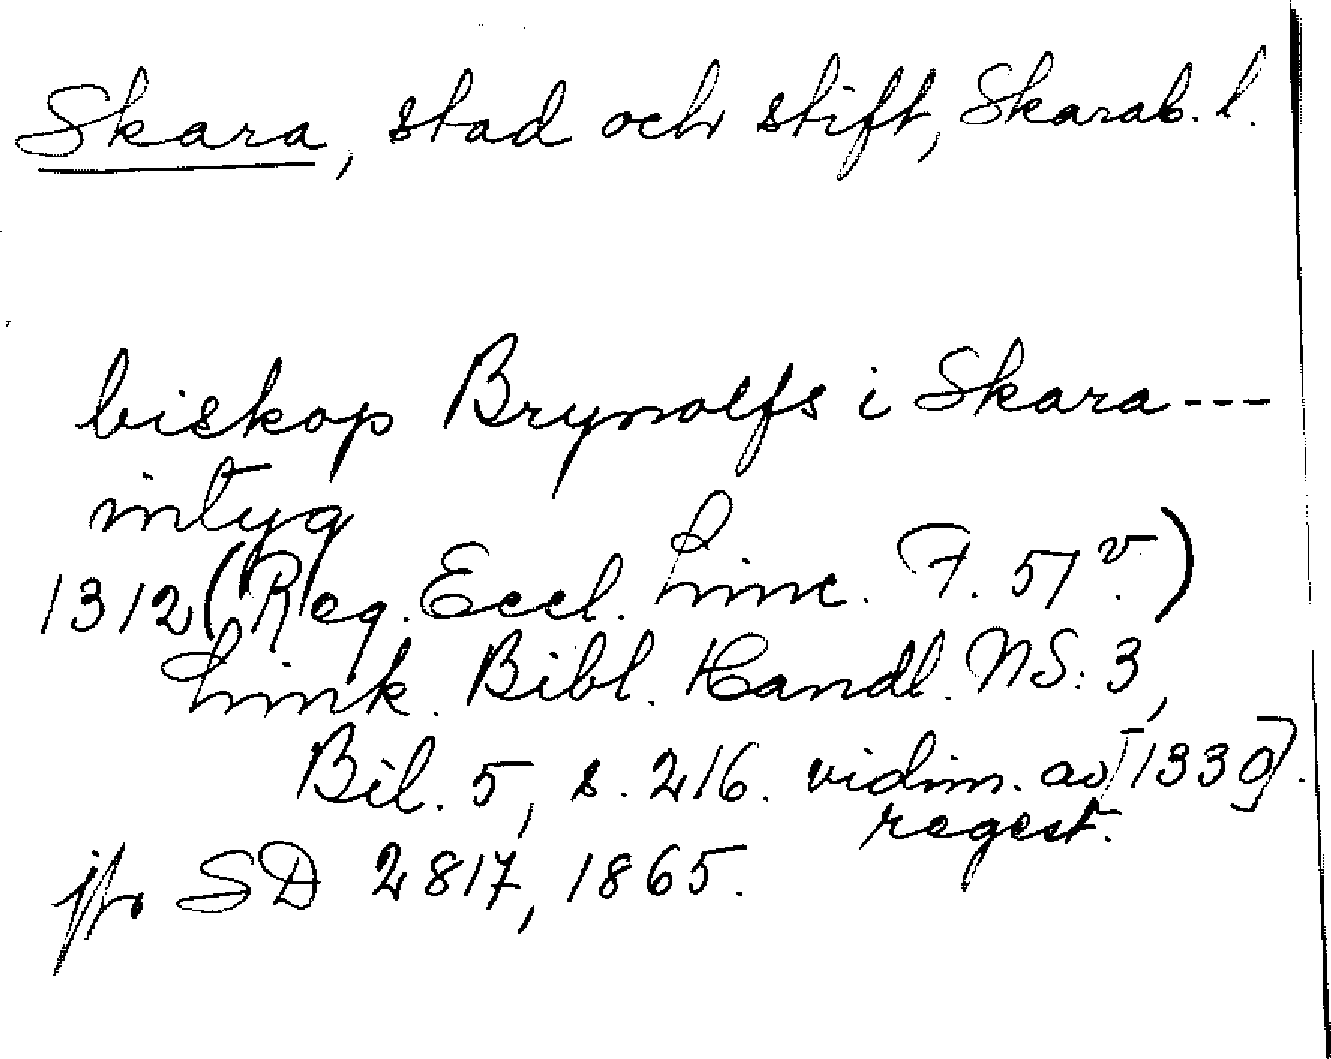 Skara, stad och stift, Skarab. l.
biskop Brynolfs i Skara ---
intyg
1312 (Reg. Eccl. Linc. F. 57 v.)
Link. Bibl. Handl. NS: 3,
Bil. 5, s. 216. vidim. av [1330].
regest.
jfr SD 2817, 1865.